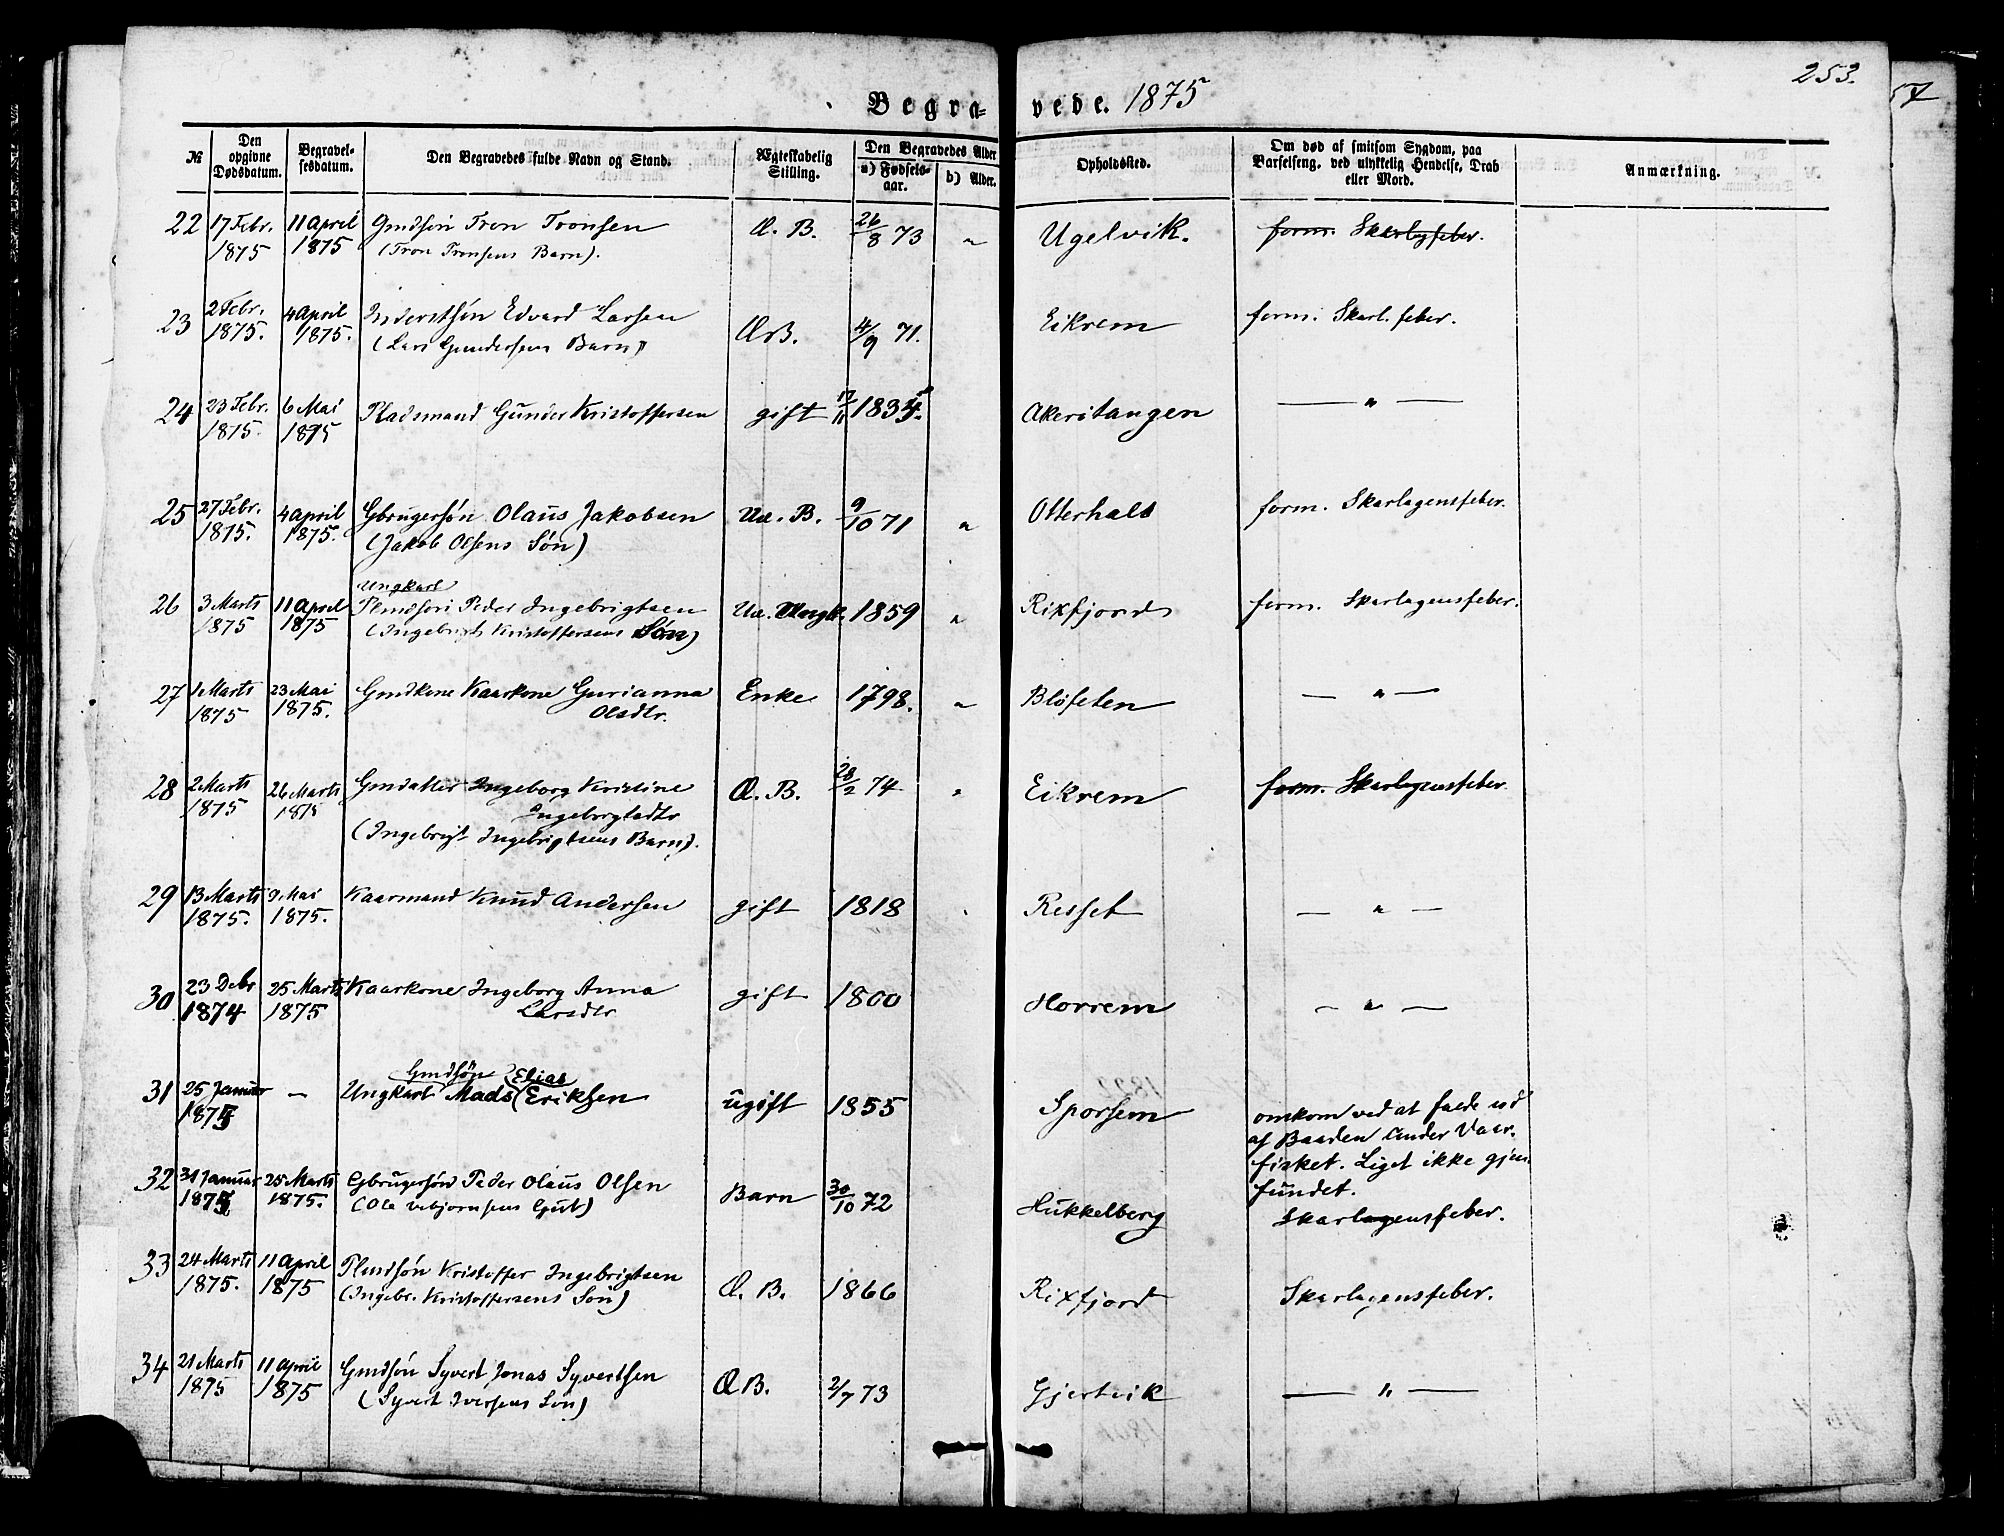 253.
Begravede. 1875
№
Den opgivne Dødsdatum.
Begravelsesdatum.
Den Begravedes fulde Navn og Stand.
Ægteskabelig Stilling.
Den Begravedes Alder
a) Fødselsaar.
b) Alder.
Opholdssted.
Om død af smitsom Sygdom, paa Barselseng, ved ulykkelig Hendelse, Drab eller Mord.
Anmærkning.
22 17 Febr. 11 April Gmdsøn Tron Tronsen Æ. B. 26/8 73 " Ugelvik. form. Skarlgfeber.
1875 1875 (Tron Tronsens Barn).
23 2 Febr. 4 April Edvard Larsen ÆB. 4/9 71. Eikrem form. Skarl. feber.
1875. 1875. (Lars Gundersens Barn)
24 23 Febr. 6 Mai Pladsmand Gunder Kristoffersen gift 17/11 1834. Akerstangen — " —
1875. 1875
25 27 Febr. 4 April Gbrugersøn Olaus Jakobsen Uæ. B. 9/10 71 " Otterhals form. Skarlagensfeber.
1875. 1875. (Jakob Olsens Søn)
Ungkarl
26 3 Marts 11 April Plmdsøn Peder Ingebrigtsen Uæ. Ungk. 1859 " Rixfjord form. Skarlagensfeber.
1875 1875 (Ingebrigt Kristoffersens Søn)
27 1 Marts 23 Mai Gmdkone Kaarkone Gurianna Enke 1798. " Bløfeten — " —
1875 1875. Olsdtr.
28 2 Marts 26 Marts Gmdatter Ingeborg Kristine Æ. B. 28/2 74 " Eikrem form. Skarlagensfeber
1875 1875 Ingebrigtsdtr
(Ingebrigt Ingebrigtsens Barn).
29 13 Marts 9 Mai Kaarmand Knud Andersen gift 1818 Resset — " —
1875. 1875.
30 23 Debr 25 Marts Kaarkone Ingeborg Anna gift 1800 Horrem — " —
1874 1875 Larsdtr
Gmdsøn Elias
31 25 Januar — Ungkarl Mads Eriksen ugift 1855 Sporsem omkom ved at falde ud
1875 af Baaden under Vaar-
fisket. Liget ikke gjen-
fundet.
32 31 Januar 25 Marts Gbrugersøn Peder Olaus Olsen Barn 30/10 72 Hukkelberg Skarlagensfeber.
1875 1875. (Ole Vebjørnsens Gut)
33 24 Marts 11 April Plmdsøn Kristoffer Ingebrigtsen Æ. B. 1866 Rixfjord Skarlagensfeber.
1875. 1875 (Ingebr. Kristoffersens Søn)
34 21 Marts 11 April Gmdsøn Syvert Jonas Syvertsen ÆB. 2/7 73 Gjertvik — " —
1875 1875 (Syvert Iversens Søn)